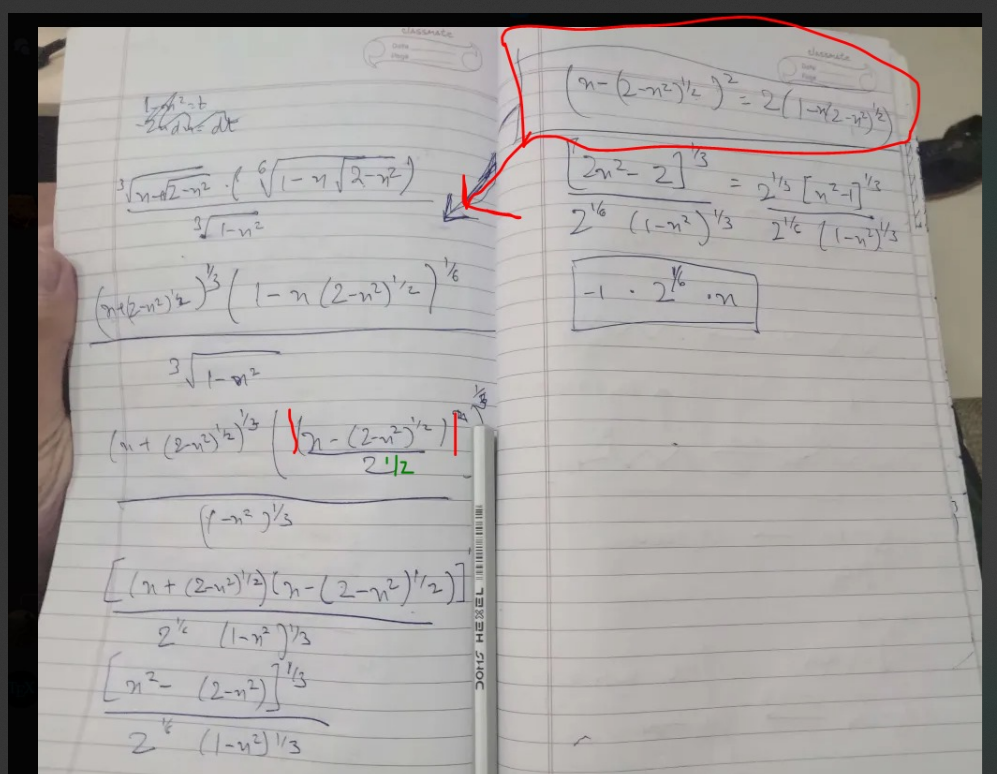 classmate
Date
Page
1-x²=t
-2x dx = dt
∛(x+√(2-x²)) · (⁶√(1-x√(2-x²)))
∛(1-x²)
(x+(2-x²)^1/2)^1/3 (1-x(2-x²)^1/2)^1/6
∛(1-x²)
(x+(2-x²)^1/2)^1/3 ((x-(2-x²)^1/2)
2^1/2
(1-x²)^1/3
[(x+(2-x²)^1/2)(x-(2-x²)^1/2)]
2^1/6 (1-x²)^1/3
[x²-(2-x²)]^1/3
2^1/6 (1-x²)^1/3
DOMS HEXEL
classmate
Date
Page
(x-(2-x²)^1/2)² = 2(1-x(2-x²)^1/2)
[2x²-2]^1/3 = 2^1/3 [x²-1]^1/3
2^1/6 (1-x²)^1/3 2^1/6 (1-x²)^1/3
-1 · 2^1/6 · x